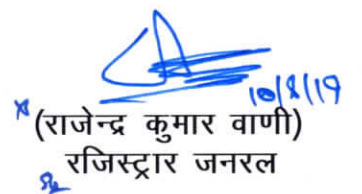 10/8/19
(राजेन्द्र कुमार वाणी)
रजिस्ट्रार जनरल